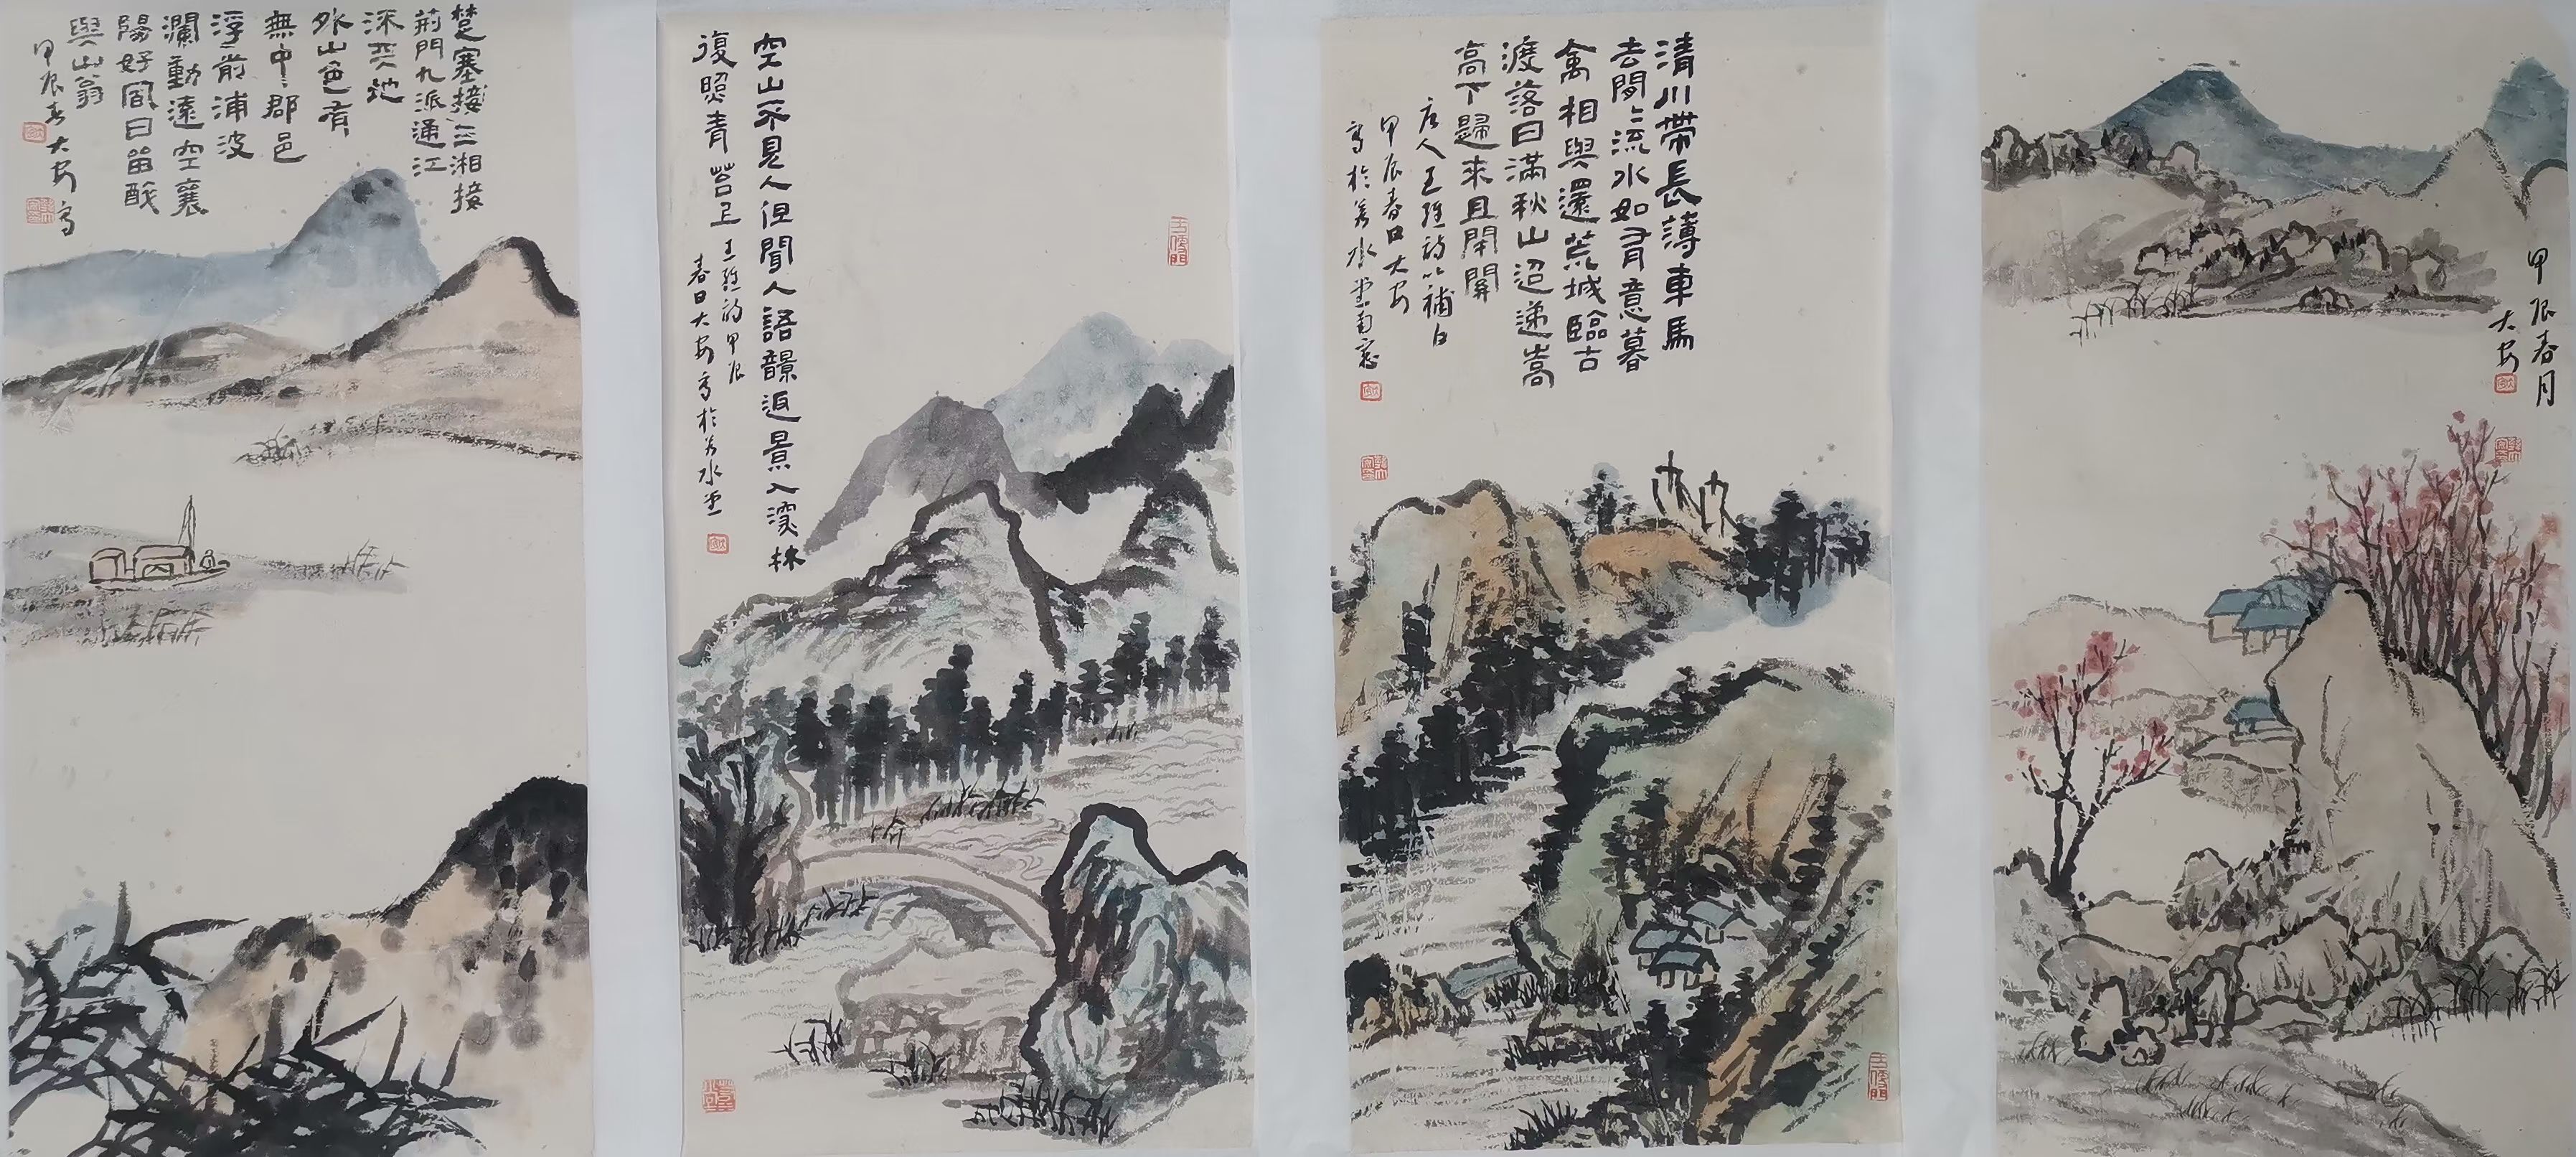 楚塞接三湘接
荊門九派通江
流天地
外山色有
無中〻郡邑
浮前浦波
瀾動遠空襄
陽好風日留醉
與山翁
甲辰春大安寫
空山不見人但聞人語響返景入深林
復照青苔上
王維詩甲辰
春日大安寫於若水堂
清川帶長薄車馬
去閒〻流水如有意暮
禽相與還荒城臨古
渡落日滿秋山迢遞嵩
高下歸來且閉關
唐人王維詩以補白
甲辰春日大安
寫於若水堂南窗
甲辰春月
大安